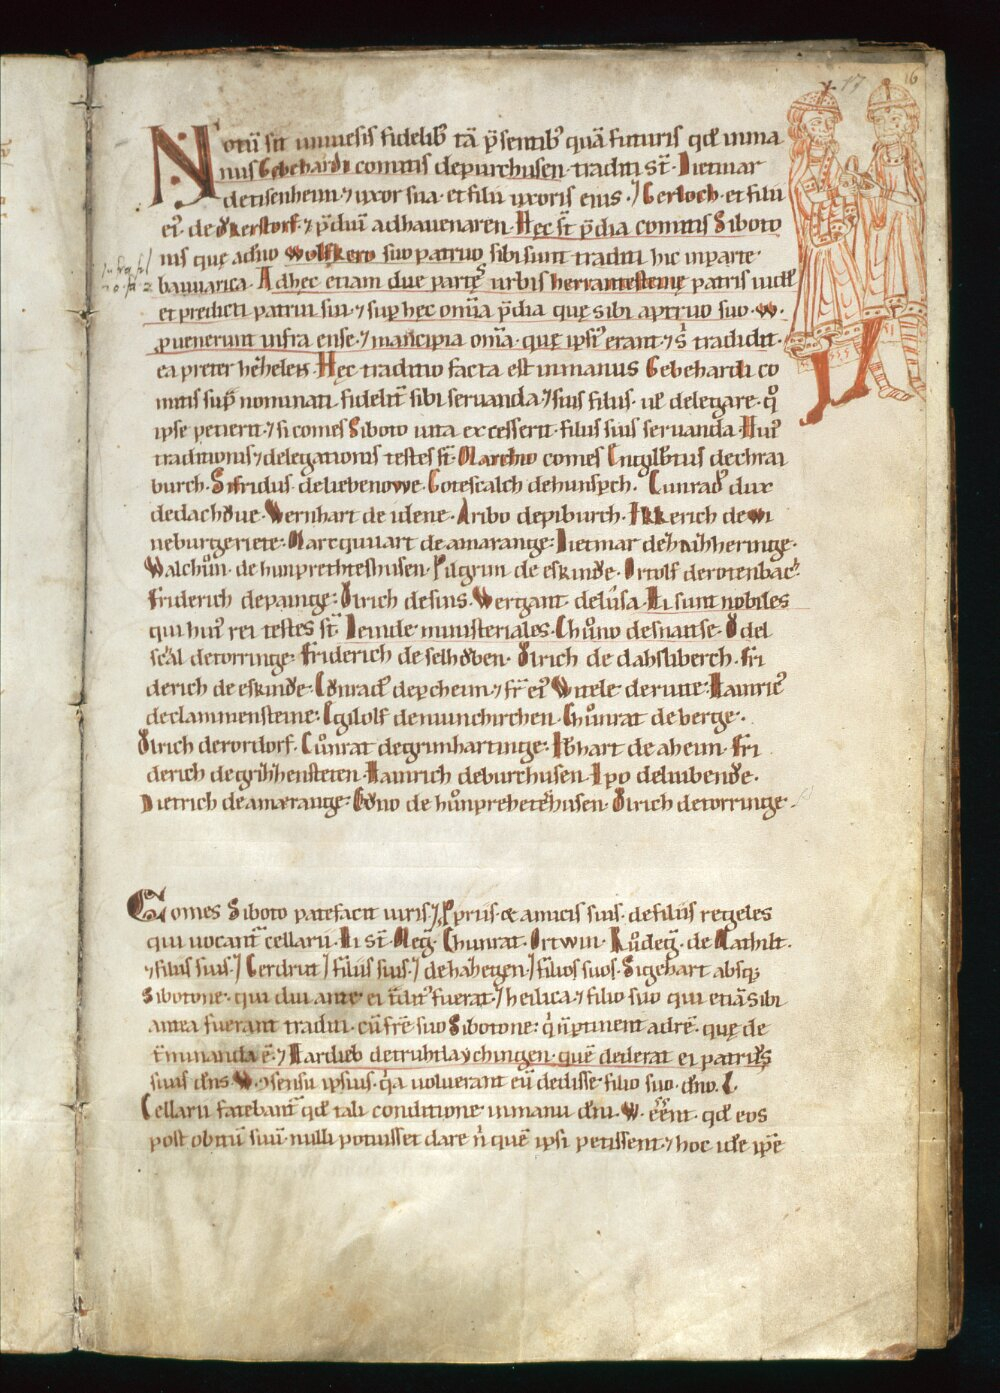 17 16
Notū sit uniuersis fidelib; tā p̄sentib; quā futuris qd̄ in ma
nus Gebehardi comitis de purchusen traditi st̄. Dietmar
de tisenheim ⁊ uxor sua. et filii uxoris eius. ⁊ Gerloch. et filii
ei᾽. de Ökerstorf. ⁊ p̄diū ad hauenaren. Hęc st̄ p̄dia comitis Siboto
nis quę ab auo Wolfkero suo patruo sibi sunt tradita hic in parte
bauuarica. Adhęc etiam due partes urbis herrantesteine patris uidel̄
et predicti patrui sui ⁊ sup hęc om̄ia p̄dia quę sibi a patruo suo. W.
puenerunt infra ense. ⁊ mancipia om̄ia. quę ipsi᾽ erant ⁊ s᾽ tradidit.
ea preter Hęc traditio facta est in manus Gebehardi co
mitis sup nominati fidelit̄ sibi seruanda. ⁊ suis filiis. uel delegare. q̊
ipse petierit. ⁊ si comes Siboto uita excesserit. filiis suis seruanda. Hui᾽
traditionis ⁊ delegationis testes st̄. Marchio comes Engilb̄tus de chrai
burch. Sifridus de liebenowe. Gotescalch de hunsp̄ch. Cunrad᾽ dux
de dachöue. Wernhart de idene. Aribo de piburch. Ekkerich de wi
neburgeriete. Marcquuart de amarange. Dietmar de
Walchůn. de hunprehtteshusen. Pilgrim de eskinöe. Ortolf de rotenbac
Friderich de paringe. Ölrich de sins. Wergant. de lůsa. Hi sunt nobiles
qui hui᾽ rei testes st̄. Deinde ministeriales. Chůno de snaitse. Ödel
scal de torringe. Friderich de selhöben. Ölrich de dahsliberch. Fri
derich de eskinöe. Cönrad᾽ de p̄cheim. ⁊ fr̄ ei᾽ Witele de rute. Hainric᾽
de clammensteine. Egilolf de niunchirchen. Chůnrat de berge.
Ölrich de rordorf. Cůnrat de grimhartinge. Eb̄hart de aheim. Fri
derich de Hainrich de burchusen. Ipo de liubenöe.
Dietrich de amærange. Cöno de hůnprehetehusen. Ölrich de torringe.
Comes Siboto patefacit uiris ⁊ p̄priis & amicis suis. de filiis regeles
qui uocant᾽ cellarii. Hi st̄. Meg. Chunrat. Ortwin. Růdeg̅. de Mathilt.
⁊ filiis suis. ⁊ Gerdrut ⁊ filiis suis. ⁊ de hahegen. ⁊ filios suos. Sigehart absq;
Sibotone. qui diu ante ei t̄dit᾽ fuerat. ⁊ heilica ⁊ filio suo qui etiā sibi
antea fuerant traditi. cū fr̄e suo Sibotone: q̇ n̄ ptinent ad rē. quę de
t̄minanda ē. ⁊ Hardieb de truhtlaychingen. quē dederat ei patruus
suus dn̄s. W. ↄsensu ipsius. q̇a uoluerant eū dedisse filio suo. dn̄o. L.
Cellarii fatebant᾽ qd̄ tali conditione in manu dn̄i. W. eēnt. qd̄ eos
post obitū suū. nulli potuisset dare n̄ quē ipsi petissent. ⁊ hoc ide ip̄e